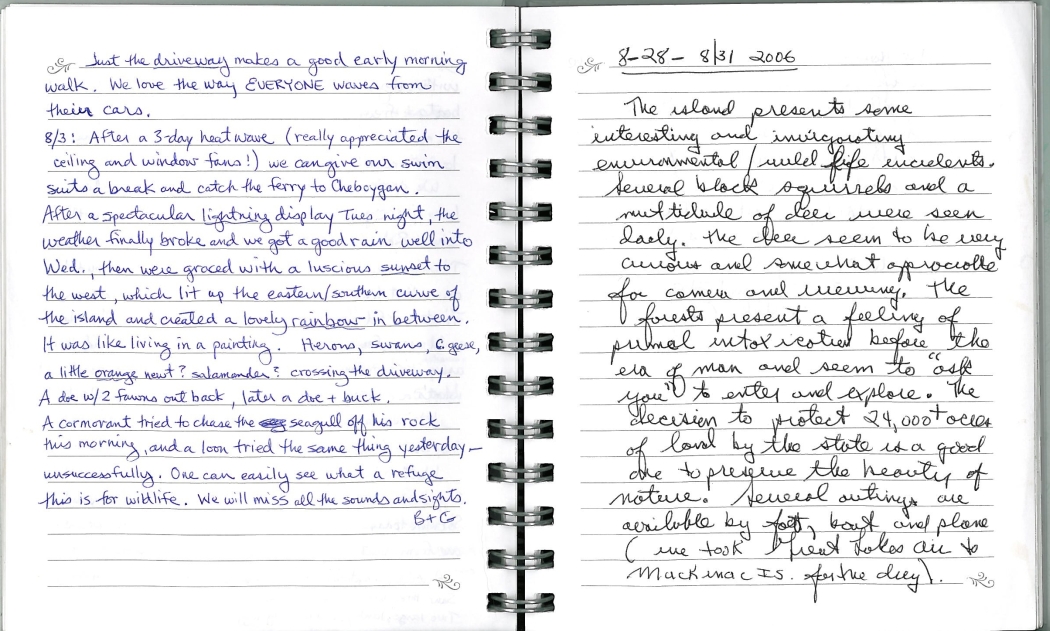 Just the driveway makes a good early morning
walk. We love the way EVERYONE waves from
their cars.
8/3: After a 3-day heatwave (really appreciated the
ceiling and window fans!) we can give our swim
suits a break and catch the ferry to Cheboygan.
After a spectacular lightning display Tues night, the
weather finally broke and we got a good rain well into
Wed., then were graced with a luscious sunset to
the west, which lit up the eastern/southern curve of
the island and created a lovely rainbow in between.
It was like living in a painting. Herons, swans, C. geese,
a little orange newt? salamander? crossing the driveway.
A doe w/2 fawns out back, later a doe + buck.
A cormorant tried to chase the seagull off his rock
this morning, and a loon tried the same thing yesterday –
unsuccessfully. One can easily see what a refuge
this is for wildlife. We will miss all the sounds and sights.
B+G
8-28 - 8/31 2006
The island presents some
interesting and invigorating
environmental/wild life incidents.
Several black squirrels and a
multidude of deer were seen
daily. The deer seem to be very
curious and somewhat approachable
for camera and viewing. The
forests present a feeling of
primal intoxication before the
era of man and seem to "ask
you" to enter and explore. The
decision to protect 24,000+ acres
of land by the state is a good
one to preserve the beauty of
nature. Several outings are
available by foot, boat and plane
(we took Great Lakes Air to
Mackinac Is. for the day).